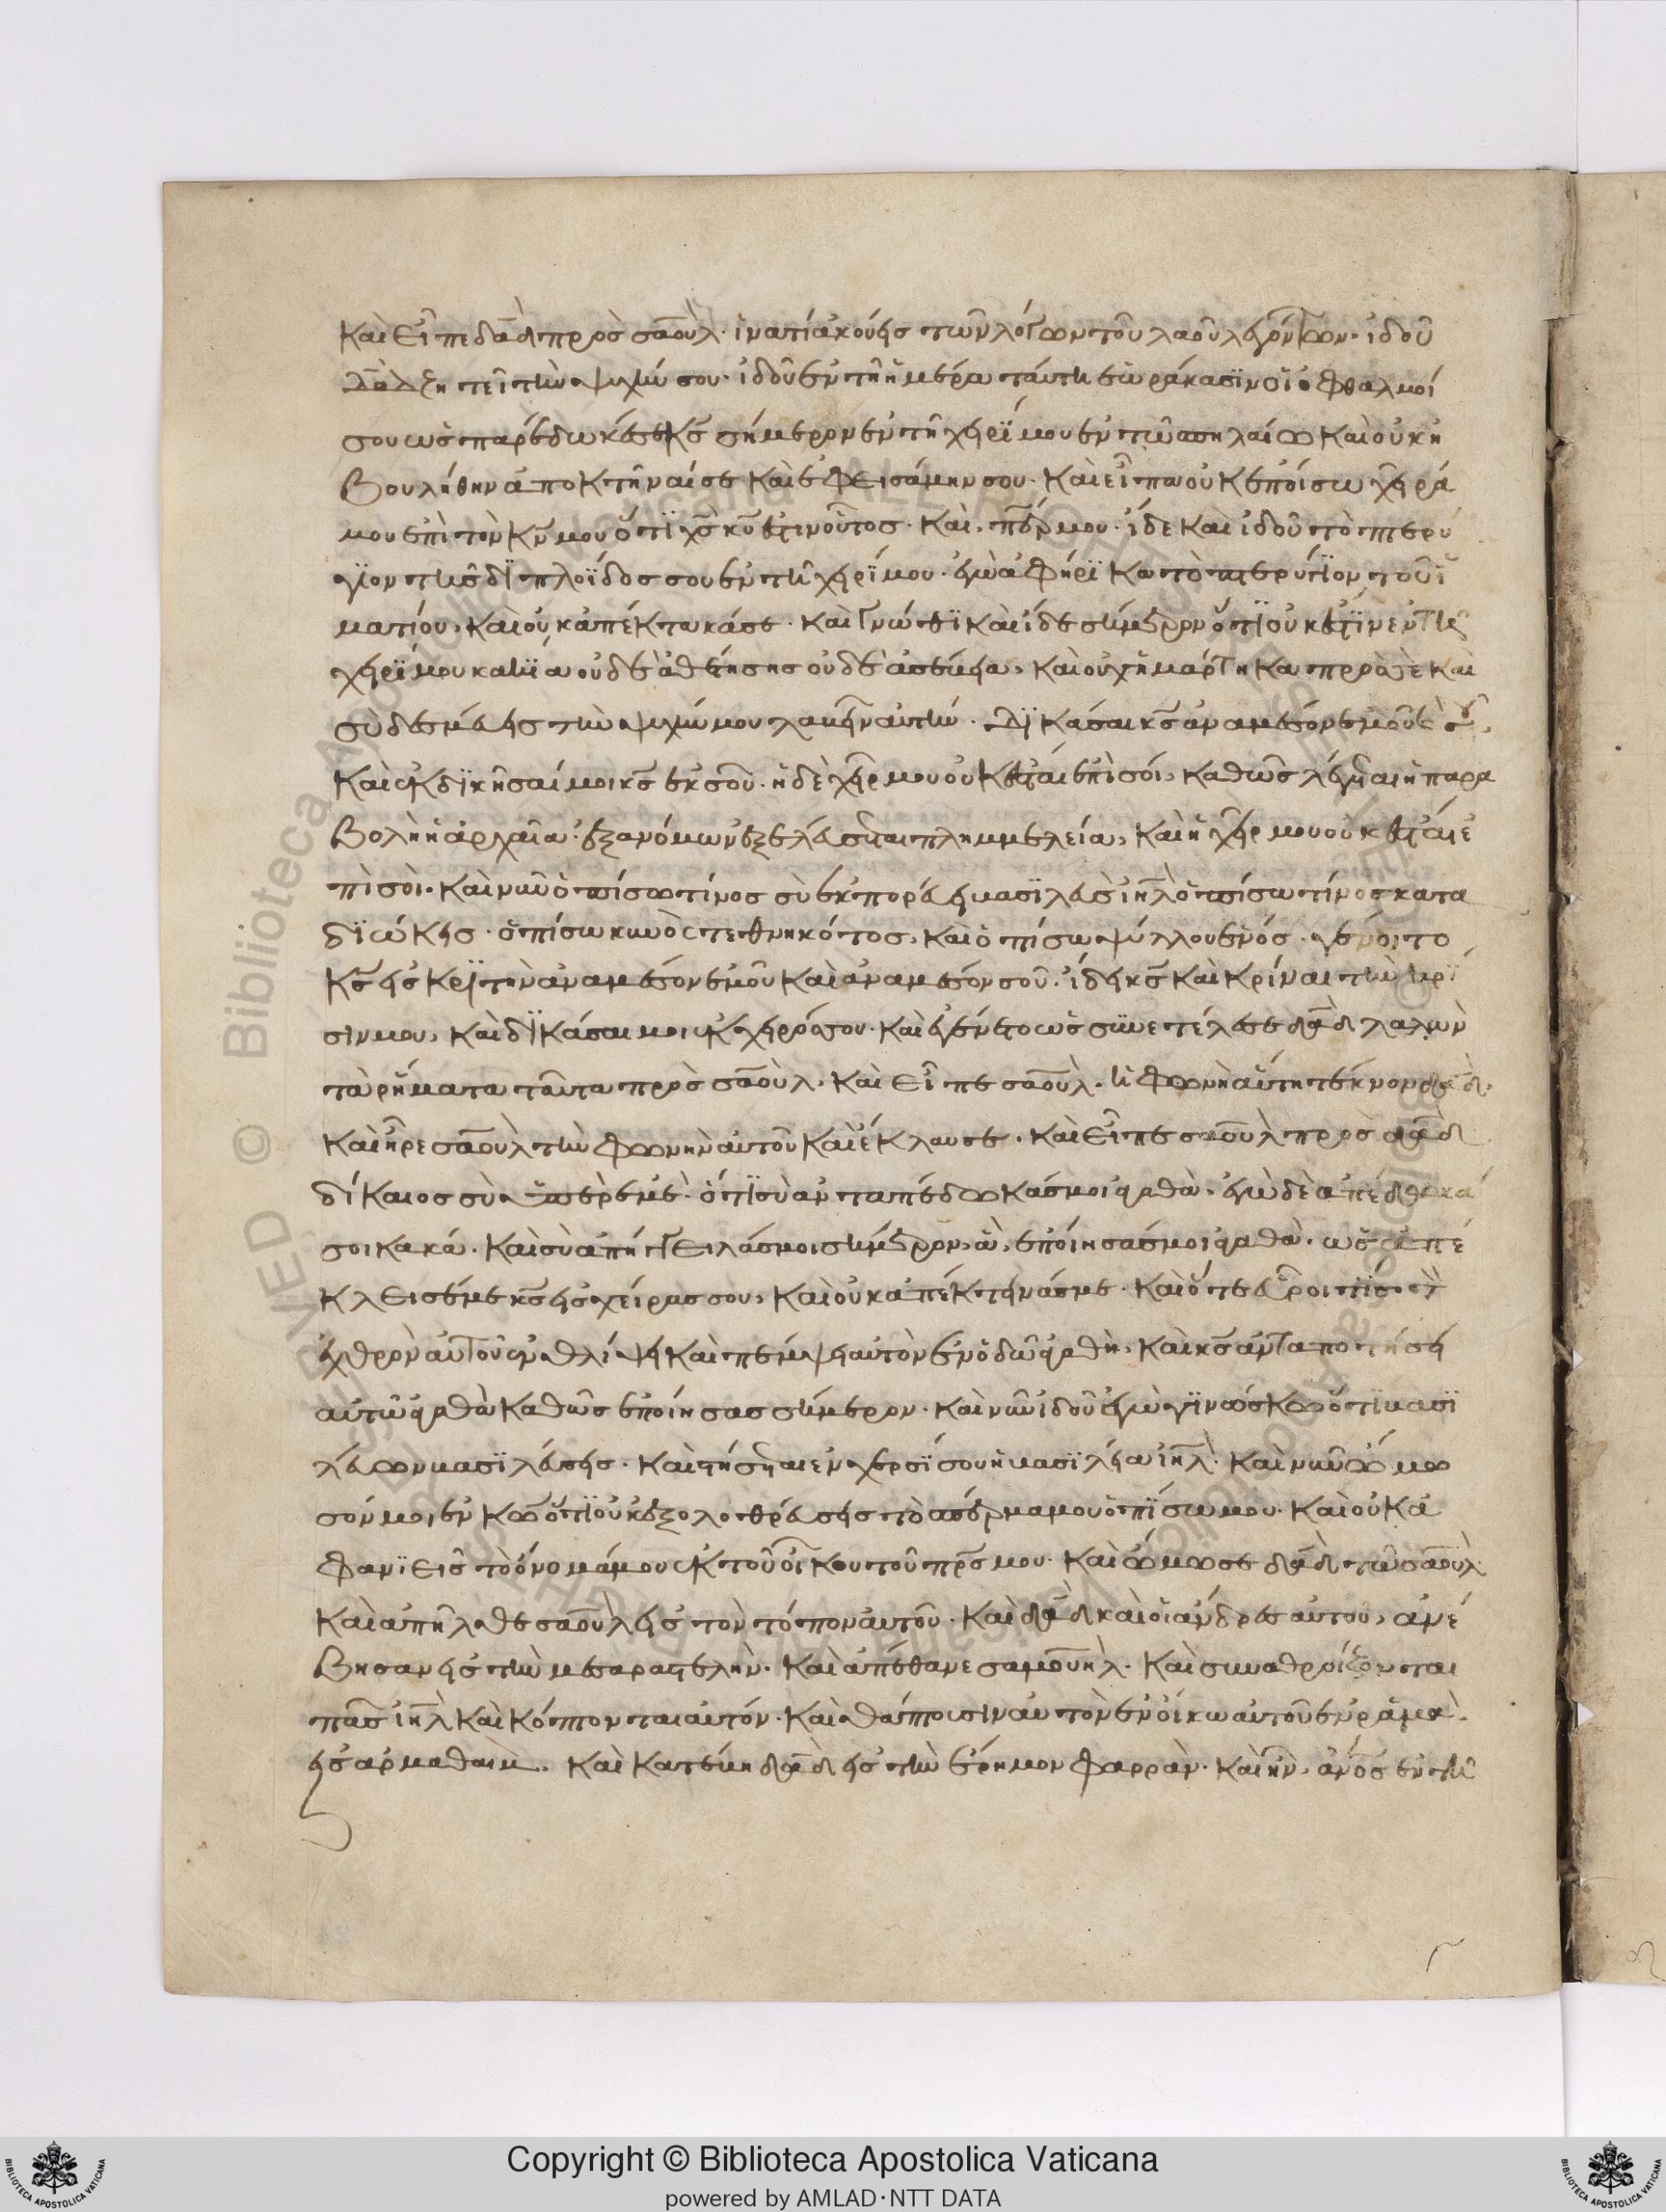 καὶ εἶπε δαδ πρὸς σαοὺλ· ἱνατί ἀκούεις τῶν λόγων τοῦ λαοῦ λεγόντων· ἰδοῦ
δαδ ζητεῖ τὴν ψυχήν σου· ἰδοῦ ἐν τῆ ἡμέρα ταύτη ἑωράκασϊν οἱ ὀφθαλμοί
σου ὡς παρέδωκέ σε κς σήμερον ἐν τῆ χειρί μου ἐν τῶ σπηλαίω καὶ οὐκ ἠ
βουλήθην ἀποκτεῖναί σε καὶ ἐφεισάμην σου· καὶ εἶπα οὐκ ἐποίσω χεῖρά
μου ἐπὶ τὸν κν μου ὅτϊ χς κυ ἐστϊν οὗτος· καὶ πέρ μου· ἴδε καὶ ἰδοῦ τὸ πτερύ
γϊον τῆς δϊπλοΐδος σου ἐν τῆ χειρί μου· ἐγὼ ἀφήρϊκα τὸ πτερύγϊον τοῦ ἱ
ματίου, καὶ οὐκ ἀπέκτακά σε· καὶ γνώθϊ καὶ ἴδε σήμερον ὅτϊ οὐκ ἔστϊν ἐν τῆ
χειρί μου κακία οὐδὲ ἀθέτησης οὐδὲ ἀσέβεια, καὶ οὐχ ἡμάρτηκα πρὸς σὲ καὶ
σὺ δεσμεύεις τὴν ψυχήν μου λαβεῖν αὐτήν· δϊκάσαι κς ἀναμέσον ἐμοῦ καὶ σοῦ,
καὶ ἐκδϊκήσαί μοι κς ἐκ σοῦ· ἡ δὲ χείρ μου οὐκ ἔσται ἐπὶ σοί, καθὼς λέγεται ἡ παρα
βολὴ ἡ ἀρχαῖα· ἐξ ἀνόμων ἐξελεύσεται πλημμελεία, καὶ ἡ χείρ μου οὐκ ἔσται ἐ
πὶ σοὶ· καὶ νῦν ὀπίσω τίνος σὺ ἐκπορεύει βασϊλεῦ ιηλ ὀπίσω τίνος κατα
δϊώκεις· ὀπίσω κυνὸς τεθνηκότος, καὶ ὀπίσω ψύλλου ἑνός· γένοιτο
κς εἰς κρϊτὴν ἀναμέσον ἐμοῦ καὶ ἀναμέσον σοῦ· ἴδει κς καὶ κρίναι τὴν κρί
σιν μου, καὶ δϊκάσαι μοι ἐκ χειρός σου· καὶ ἐγένετο ὡς συνετέλεσε δαδ λαλῶν
τὰ ρήματα ταῦτα πρὸς σαοὺλ, καὶ εἶπε σαοὺλ· ἡ φωνὴ αὕτη τέκνον δαδ·
καὶ ἦρε σαοὺλ τὴν φωνὴν αὐτοῦ καὶ ἔκλαυσε· καὶ εἶπε σαοὺλ πρὸς δαδ
δίκαιος σὺ ὑπὲρ ἐμὲ· ὅτϊ σὺ ἀνταπέδωκάς μοι ἀγαθὰ, ἐγὼ δὲ ἀπέδωκά
σοι κακά· καὶ σὺ ἀπήγγειλάς μοι σήμερον, ἃ, ἐποίησάς μοι ἀγαθὰ· ὡς ἀπέ
κλεισέ με κς εἰς χείρας σου, καὶ οὐκ ἀπέκτεινάς με· καὶ ὅτε εὕροι τὶς τὸν
ἐχθρὸν αὐτοῦ ἐν θλίψει καὶ πέμψει αὐτὸν ἐν ὁδῶ ἀγαθῆ, καὶ κς ἀνταποτίσει
αὐτῶ ἀγαθὰ καθὼς ἐποίησας σήμερον· καὶ νῦν ἰδοῦ ἐγὼ γϊνώσκω ὅτϊ βασϊ
λεύων βασϊλεύσεις· καὶ στήσεται ἐν χερσί σου ἡ βασϊλεία ιηλ· καὶ νῦν ὤμο
σόν μοι ἐν κω ὅτϊ οὐκ ἐξολοθρεύσεις τὸ σπέρμα μου ὀπίσω μου· καὶ οὐκ ἀ
φανϊεῖς τὸ ὄνομά μου ἐκ τοῦ οἴκου τοῦ πρς μου· καὶ ὤμωσε δαδ τῶ σαοὺλ·
καὶ ἀπῆλθε σαοὺλ εἰς τὸν τόπον αὐτοῦ· καὶ δαδ καὶ οἱ ἄνδρες αὐτοῦ, ἀνέ
βησαν εἰς τὴν μεσαρα στελὴν· καὶ ἀπέθανε σαμουὴλ· καὶ συναθροίζονται
πᾶς ιηλ καὶ κόπτονται αὐτόν· καὶ θάπτουσιν αὐτὸν ἐν οἴκω αὐτοῦ ἐν ραμὰ·
εἰς ἀρμαθαὶμ· καὶ κατέβη δαδ εἰς τὴν ἔρημον φαρρὰν· καὶ ἦν, ἀνος ἐν τῆ